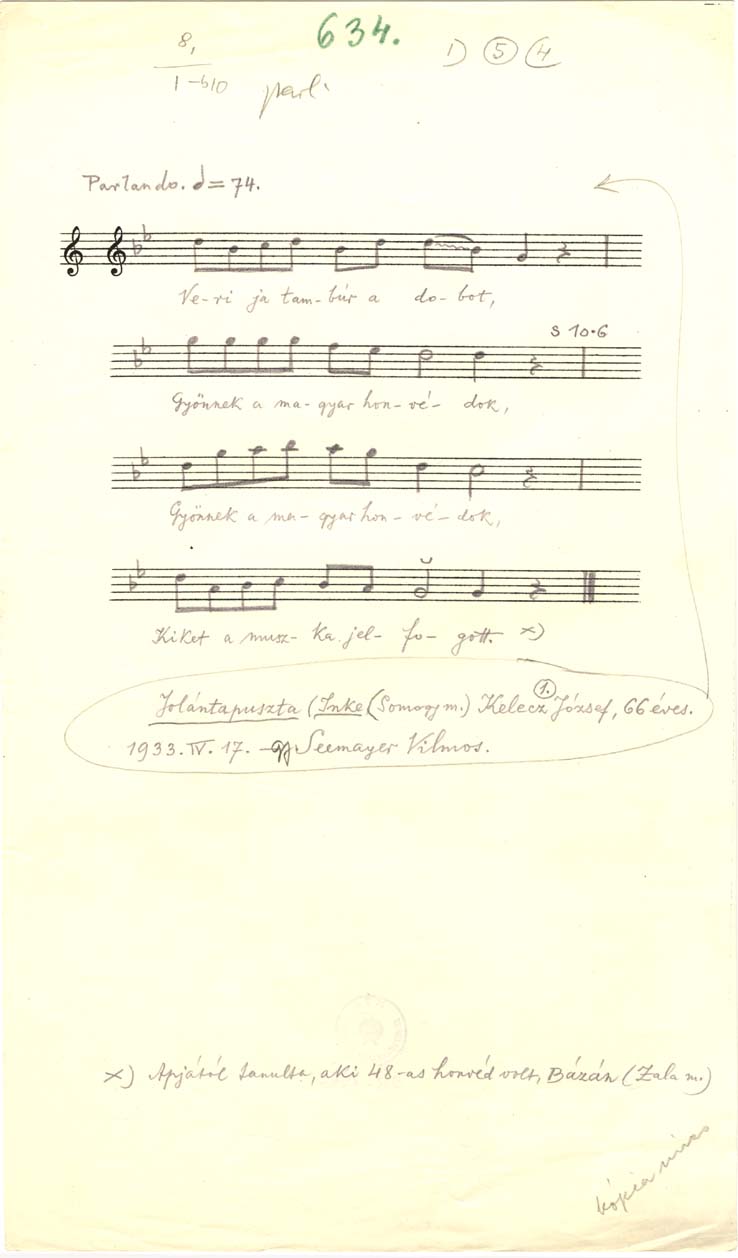 634.
8,
1-b10
parl.
1) 5 (4
Parlando. = 74.
Ve-ri ja tam-búr a do-bot,
S 10·6
Gyönnek a ma-gyar hon-vé-dok,
Gyönnek a ma-gyar hon-vé-dok,
Kiket a musz-ka jel-fo-gott. x)
1.
Jolántapuszta (Inke (Somogy m.) Kelecz József, 66 éves.
1933. IV. 17. gy Seemayer Vilmos.
x) Apjától tanulta, aki 48-as honvéd volt, Bázán (Zala m.)
kópia nincs